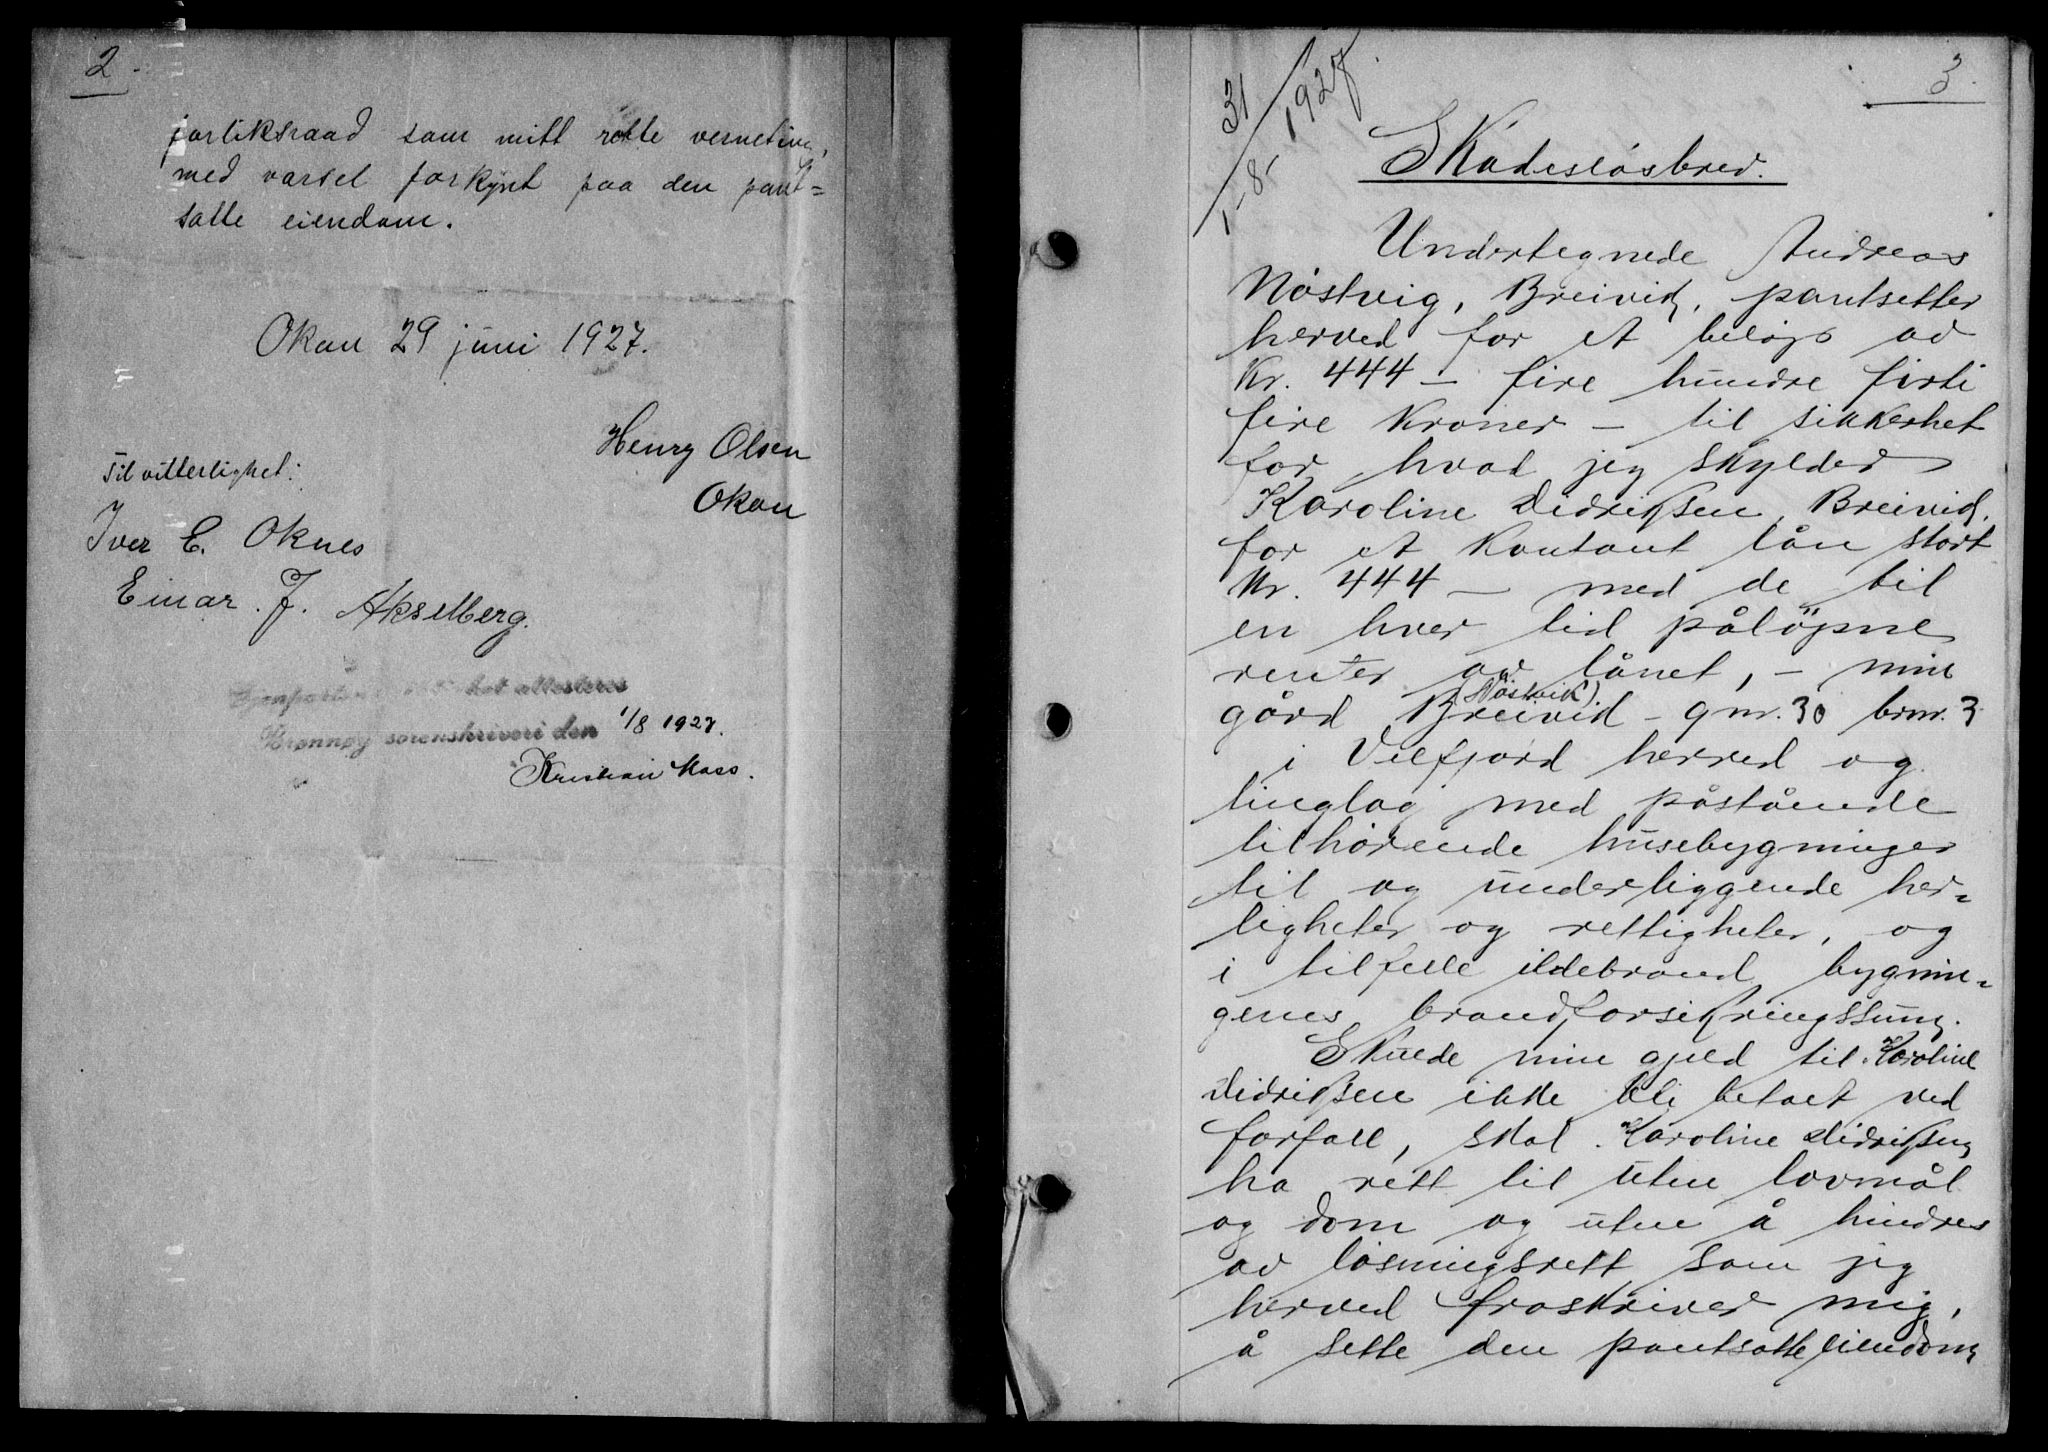 2
forliksraad som mitt rette verneting,
med varsel forkynt paa den pant=
satte eiendom.
Okan 29 juni 1927.
Henry Olsen
Okan
Til vitterlighet:
Iver E. Oknes
Einar. J. Akselberg.
Gjenpartens riktighet attesteres
Brønnøy sorenskriveri den 1/8 1927.
Kristian Mass.
3.
31/1927.
1-8-
Skadesløsbrev.
Undertegnede Andreas
Nøstvig, Breivik, pantsetter
herved for et beløp av
Kr. 444 – fire hundre firti
fire kroner – til sikkerhet
for hvad jeg skylder
Karoline Didriksen, Breivik,
for et kontant lån stort
Kr. 444 – med de til
en hver tid påløpne
renter av lånet, – min
(Nøstvik)
gård Breivid – gnr. 30 brnr. 3
i Velfjord herred og
tinglag med påstående
tilhørende husebygninger
til og underliggende her=
ligheter og rettigheter, og
i tilfelle ildebrand bygnin=
genes brandforsikringssum.
Skulde min gjeld til Karoline
Didriksen ikke bli betalt ved
forfall, skal Karoline Didriksen
ha rett til uten lovmål
og dom og uten å hindres
av løsningsrett som jeg
herved fraskriver mig,
å sette den pantsatte eiendom